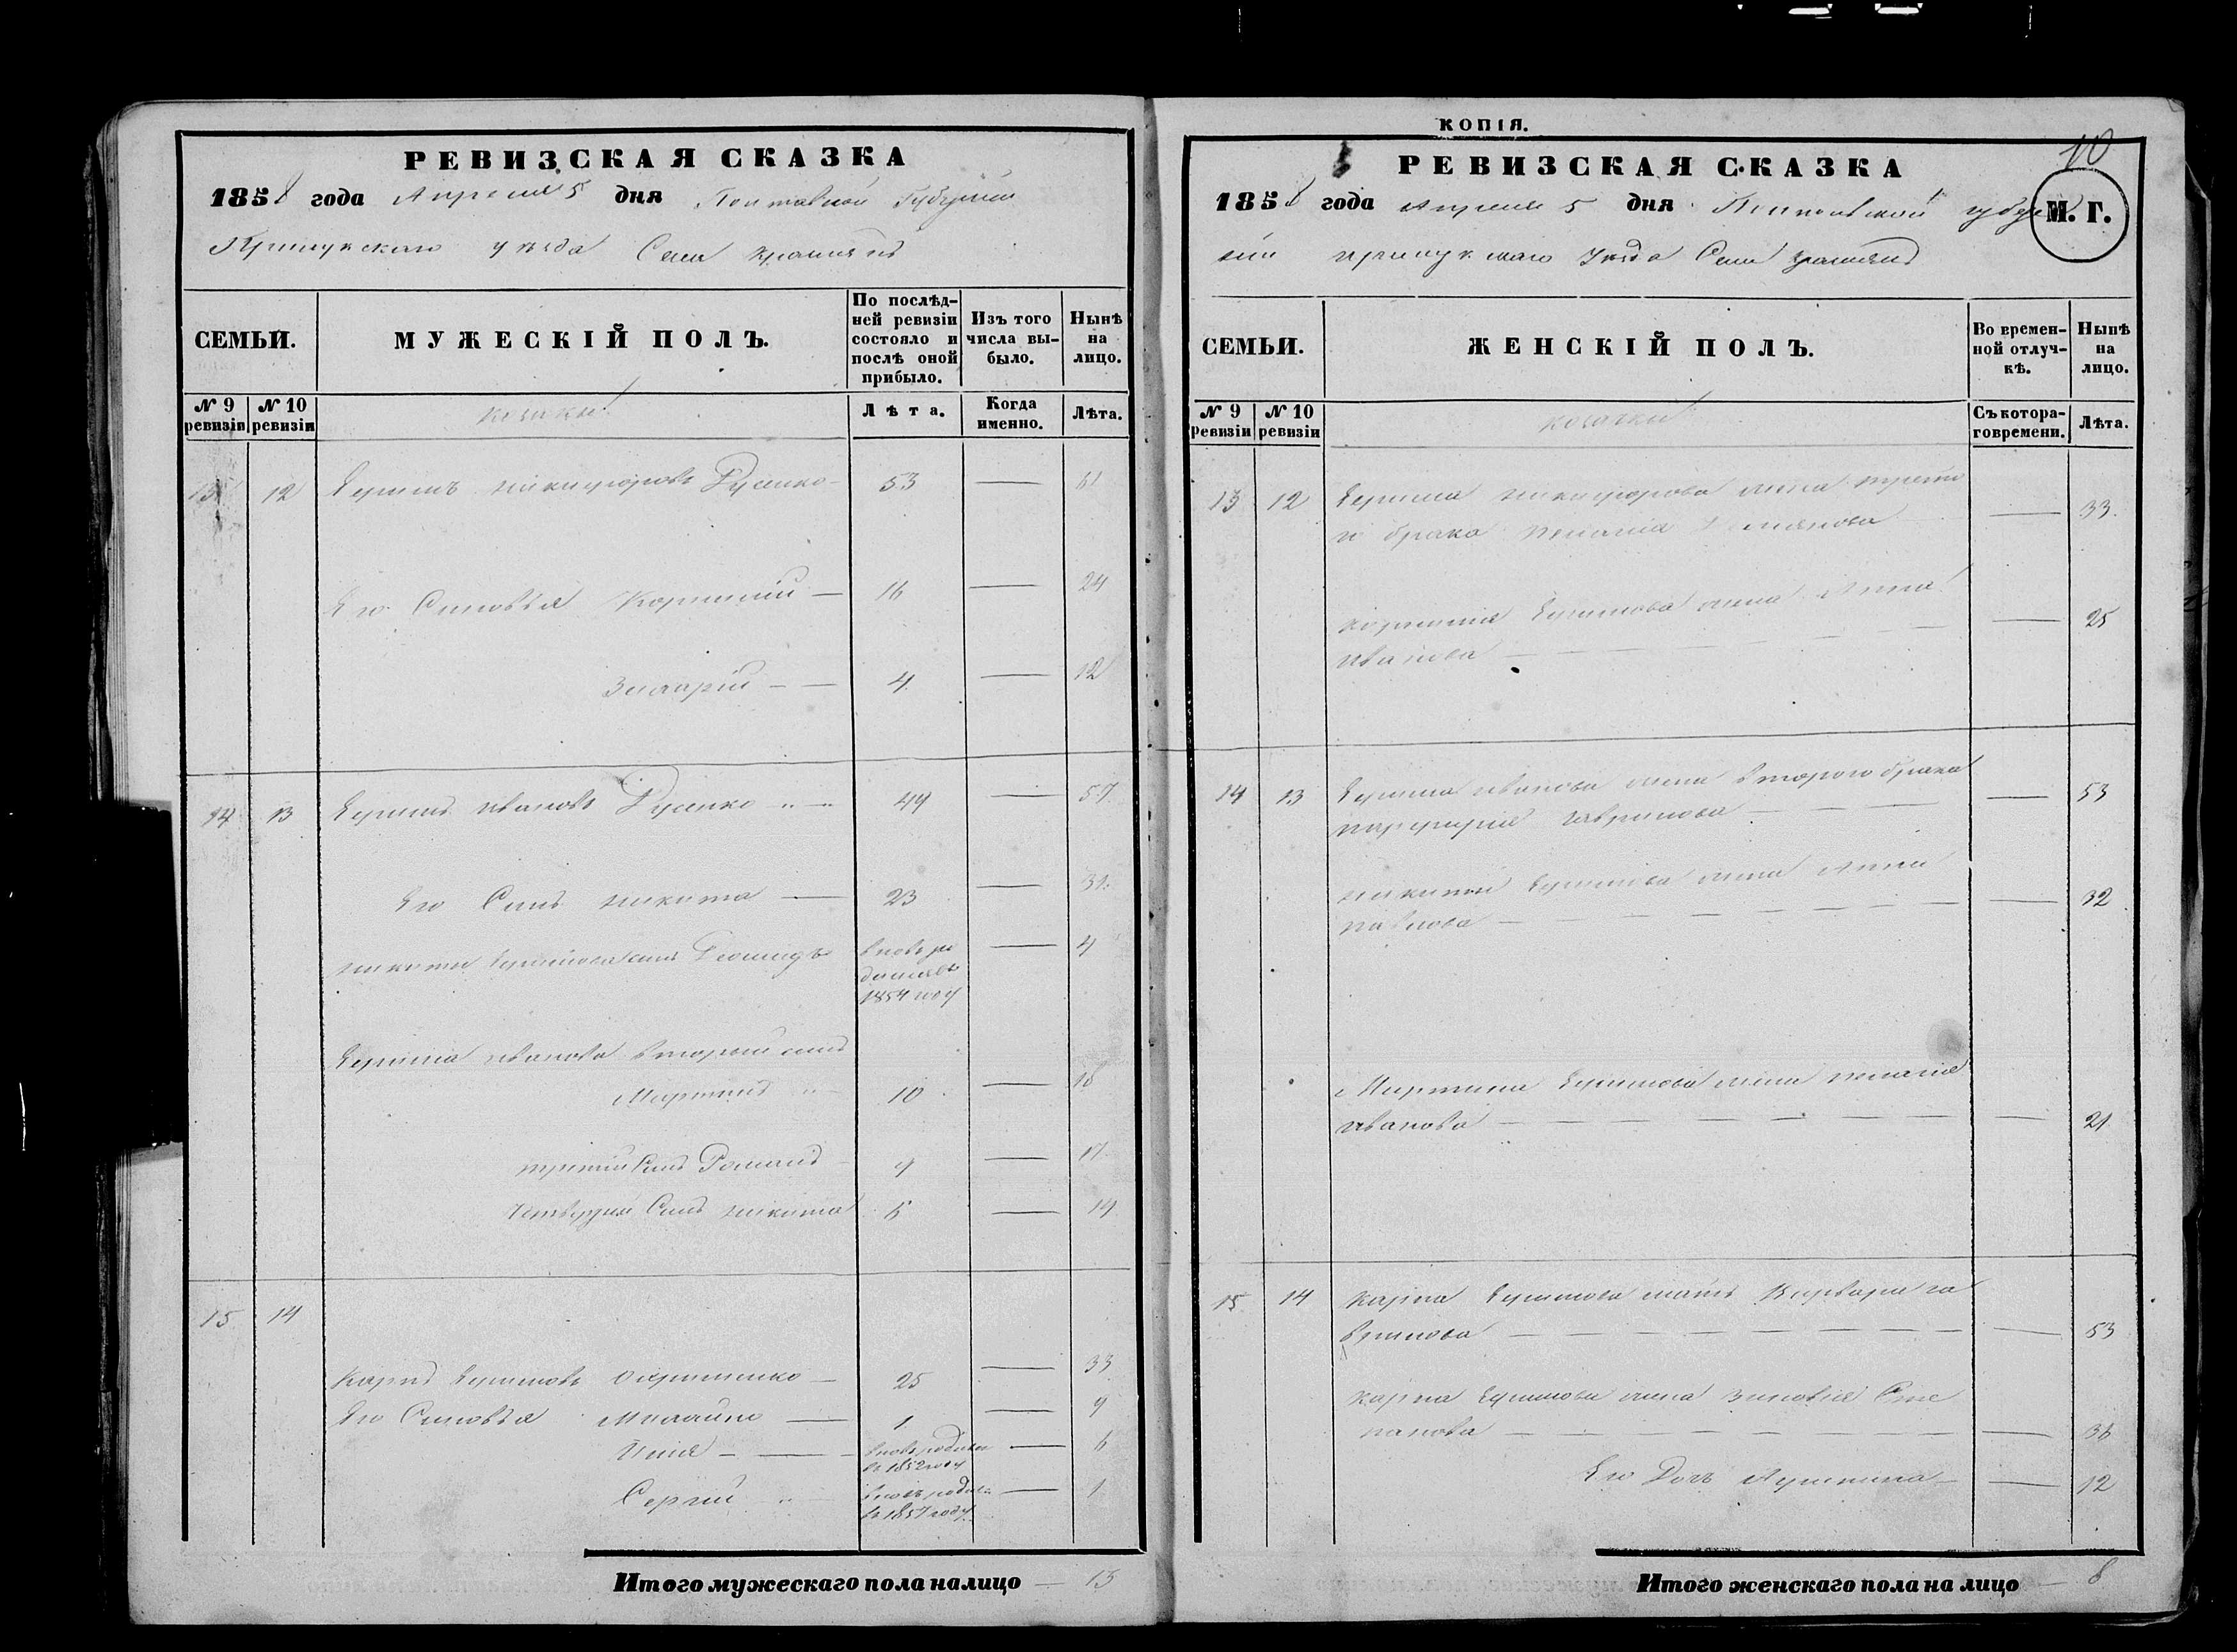 КОПІЯ.
РЕВИЗСКАЯ СКАЗКА
1858 года Апреля 5 дня Полтавской Губернии
Прилукского уезда Села
СЕМЬИ.
МУЖЕСКІЙ ПОЛЪ.
По послѣд-
ней ревизіи
состояло и
послѣ оной
прибыло.
Изъ того
числа вы-
было.
Нынѣ
на
лицо.
№ 9 ревизіи
№ 10 ревизіи
козаки
Лѣта.
Когда
именно.
Лѣта.
13 12 Ефимъ Никифоровъ Русенко 53 — 61
Его Сыновья Корнилий — 16 — 24
4 — 12
14 13 Ефимъ Ивановъ Русенко 49 — 57
Его Сынъ Никита — 23 — 31
Никиты Ефимова сынъ — 4
вновь ро
дился въ
1854 году
Ефима Иванова вторый сынъ
Мартинъ 10 — 18
третий Сынъ Романъ 9 — 17
Сынъ Никита —
15 14
Карпъ Ефимовъ — 25 — 33
Его Сыновья — 1 — 9
Илия — вновь родился — 6
въ 1852 году
Сергий вновь родил. — 1
въ 1857 году
Итого мужескаго пола налицо — 13
10
РЕВИЗСКАЯ СКАЗКА
М. Г.
1858 года Апреля 5 дня Полтавской губер
нии Прилукского уезда Села
СЕМЬИ.
ЖЕНСКІЙ ПОЛЪ.
Во времен-
ной отлуч-
кѣ.
Нынѣ
на
лицо.
№ 9 ревизіи
№ 10 ревизіи
козачки
Съ котора-
го времени.
Лѣта.
13 12 Ефима Никифорова жена третя
го брака Пелагія — 33.
Корнилия Ефимова жена Анна
Иванова — 25
14 13 Ефима Иванова жена второго брака
Гаврилова — 53
Никиты Ефимова жена Анна
Павлова — 32
Мартина Ефимова жена Пелагія
Иванова — 21
15 14 Карпа Ефимова мать Варвара Га
врилова — 53
Карпа Ефимова жена Зиновія Сте
панова — 36
Его Дочь — 12
Итого женскаго пола на лицо — 8